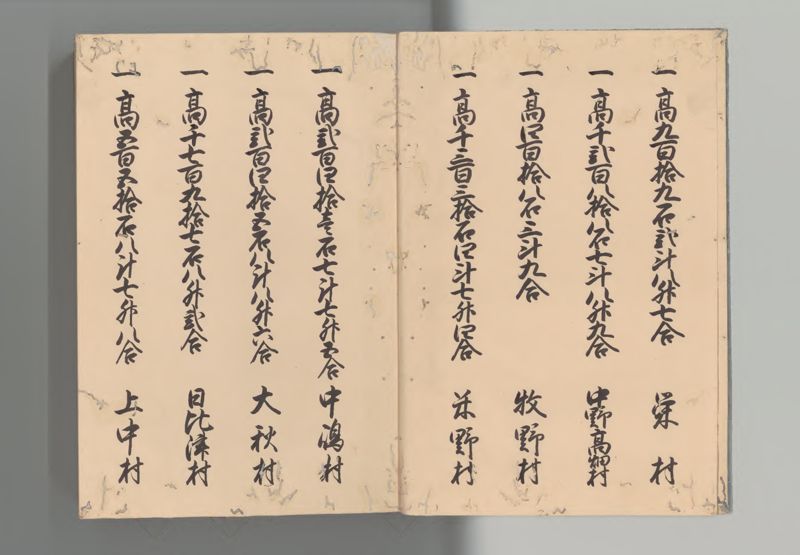 一高九百拾九石弐斗八升七合 栄村
一高千弐百八拾八石七斗八升九合 中野高畑村
一高四百拾八石三斗九合 牧野村
一高千三百三拾石四斗七升四合 米野村
一高弐百四拾壱石七斗七升五合 中嶋村
一高弐百四拾五石八斗八升六合 大秋村
一高千七百九拾七石八升弐合 日比津村
一高五百五拾石八斗七升八合 上中村